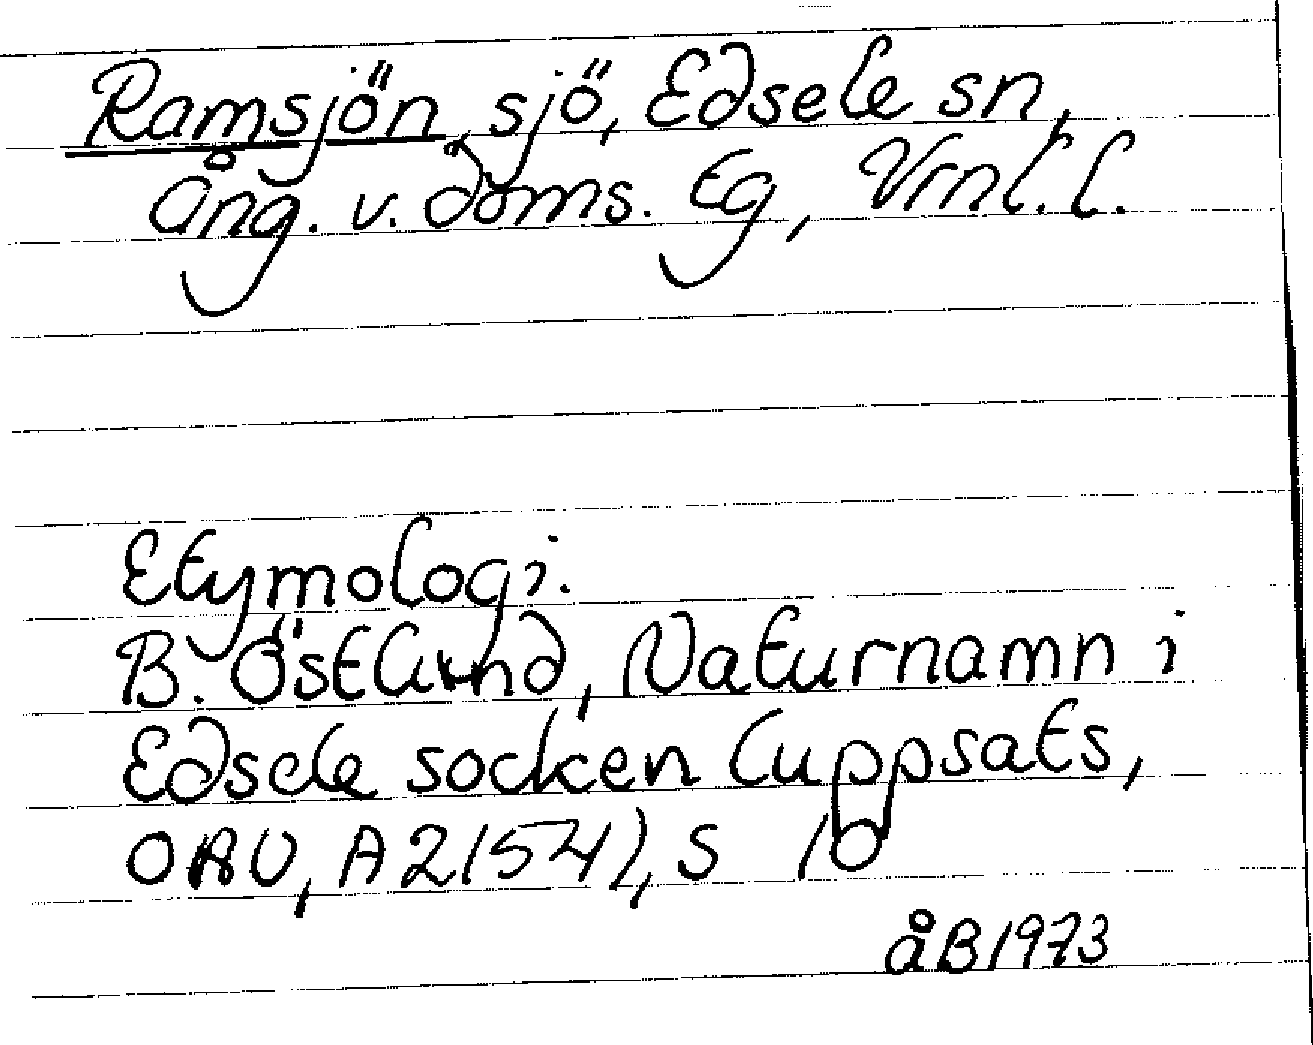 Ramsjön, sjö, Edsele sn,
Ång. v. doms. tg, Vrnl. l.
Etymologi.
B. Östlund, Naturnamn i
Edsele socken (uppsats,
OAU, A 2154), s 10
åB 1973